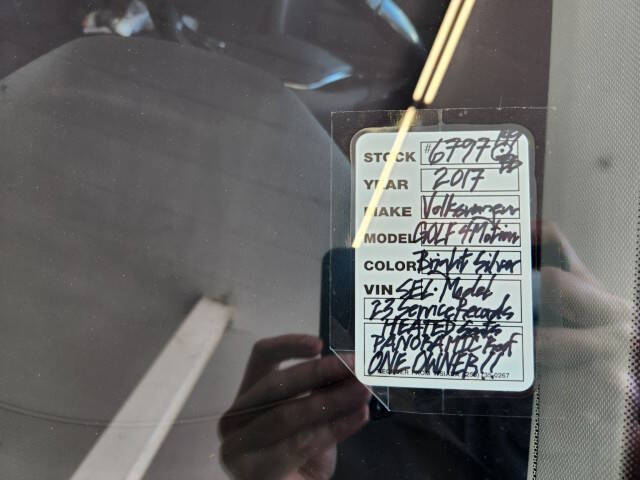 STOCK #6797
YEAR 2017
MAKE Volkswagen
MODEL GOLF 4Motion
COLOR Bright Silver
VIN SEL. Model
23 Service Records
HEATED Seats
PANORAMIC Roof
ONE OWNER!!